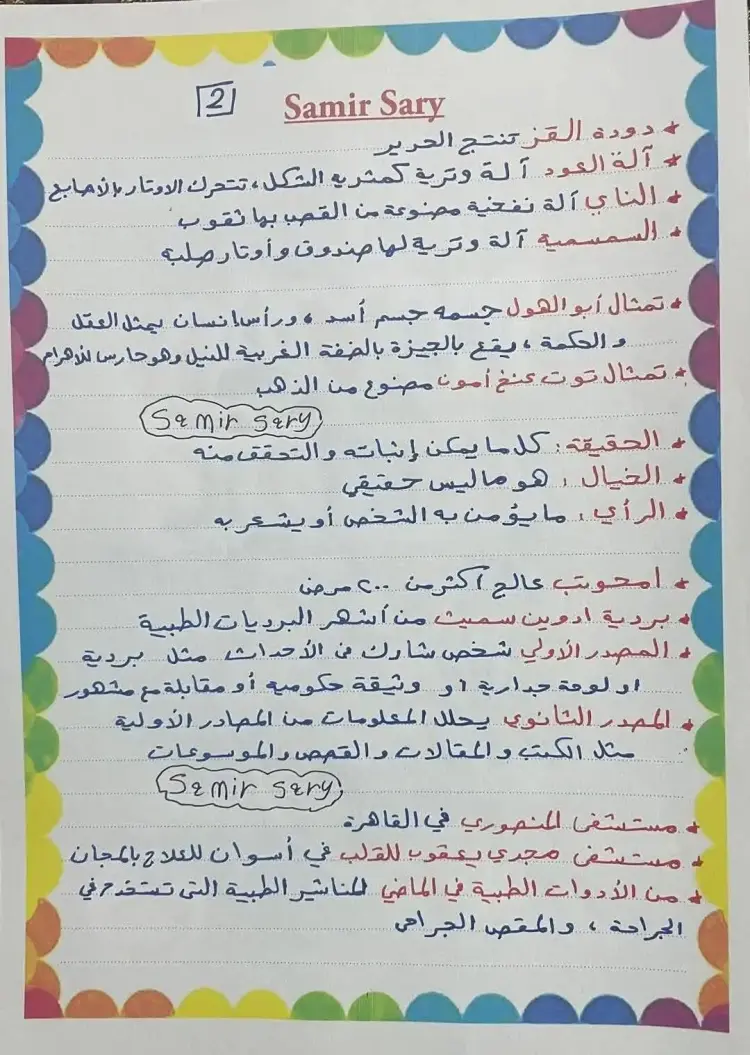 2
Samir Sary
* دودة القز تنتج الحرير
* آلة العود آلة وترية كمثرية الشكل، تتحرك الاوتار بالأصابع
* الناي آلة نفخية مصنوعة من القصب بها ثقوب
* السمسمية آلة وترية لها صندوق وأوتار صلبة
* تمثال أبو الهول جسمه جسم أسد، ورأس إنسان يمثل العقل
والحكمة، يقع بالجيزة بالضفة الغربية للنيل وهو حارس للأهرام
* تمثال توت عنخ أمون مصنوع من الذهب
Samir Sary
* الحقيقة: كل ما يمكن إثباته والتحقق منه
* الخيال: هو ما ليس حقيقي
* الرأي: ما يؤمن به الشخص أو يشعر به
* امحوتب عالج أكثر من ٢٠٠ مرض
* بردية ادوين سميث من أشهر البرديات الطبية
* المصدر الأولي شخص شارك في الأحداث مثل بردية
او لوحة جدارية او وثيقة حكومية أو مقابلة مع مشهور
* المصدر الثانوي يحلل المعلومات من المصادر الأولية
مثل الكتب والمقالات والقصص والموسوعات
Samir Sary
* مستشفى المنصوري في القاهرة
* مستشفى مجدي يعقوب للقلب في أسوان للعلاج بالمجان
* من الأدوات الطبية في الماضي المناشير الطبية التى تستخدم في
الجراحة، والمقص الجراحى